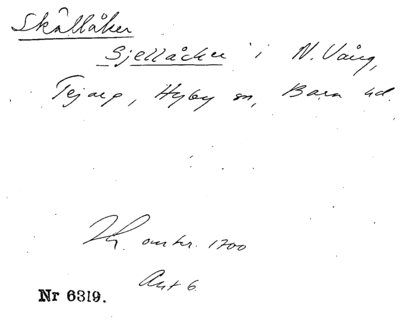 Skållåker
Sjellåcker i N. Vång,
Tejarp, Hyby sn, Bara hd.
omkr. 1700
Akt 6
Nr 6319.